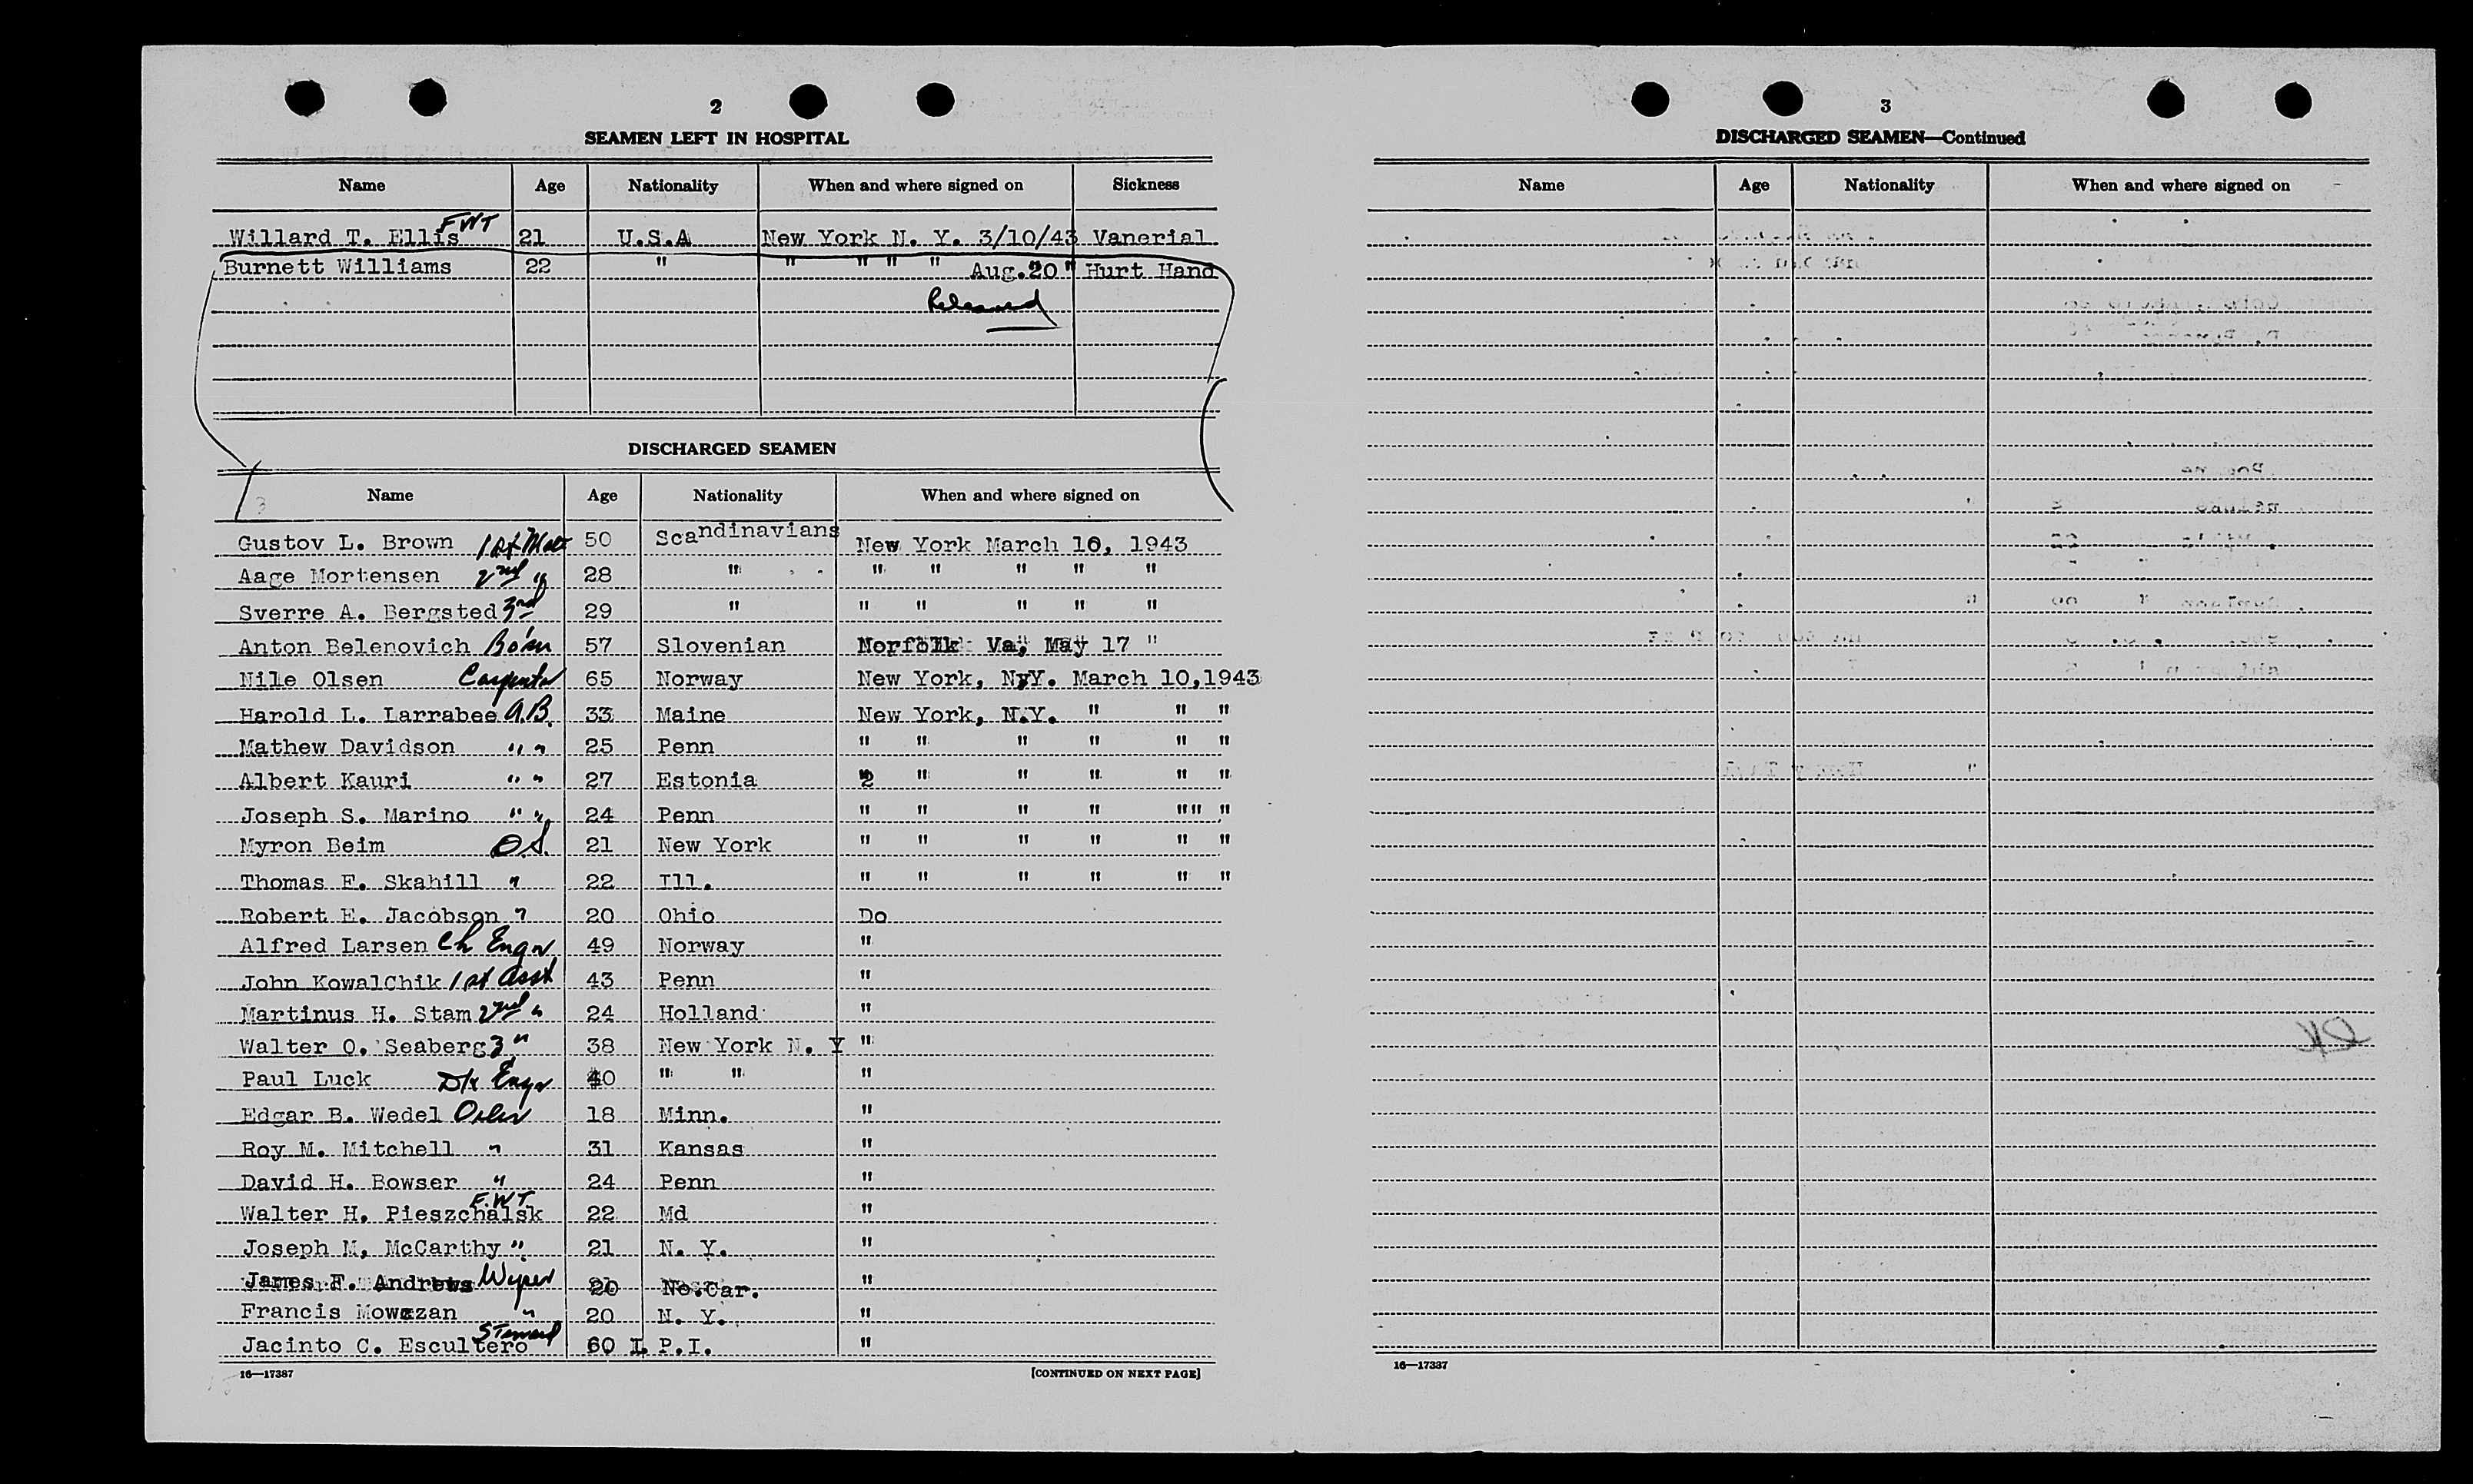 2
SEAMEN LEFT IN HOSPITAL
Name Age Nationality When and where signed on Sickness
Willard T. Ellis FWT 21 U.S.A New York N. Y. 3/10/43 Vanerial
Burnett Williams 22 " " " " " Aug. 20 " Hurt Hand
Released
DISCHARGED SEAMEN
Name Age Nationality When and where signed on
Gustov L. Brown 1st Mate 50 Scandinavians New York March 10, 1943
Aage Mortensen 2nd " 28 " " " " " "
Sverre A. Bergsted 3rd 29 " " " " " "
Anton Belenovich Bo'sn 57 Slovenian Norfolk Va, May 17 "
Nile Olsen Carpenter 65 Norway New York, N.Y. March 10,1943
Harold L. Larrabee A.B. 33 Maine New York, N.Y. " " "
Mathew Davidson " " 25 Penn " " " " " "
Albert Kauri " " 27 Estonia " " " " " "
Joseph S. Marino " " 24 Penn " " " " "" "
Myron Beim O.S. 21 New York " " " " " "
Thomas F. Skahill " 22 Ill. " " " " " "
Robert E. Jacobson " 20 Ohio Do
Alfred Larsen Ch Engr 49 Norway "
John KowalChik 1st Asst 43 Penn "
Martinus H. Stam 2nd " 24 Holland "
Walter O. Seaberg 3 " 38 New York N. Y "
Paul Luck Dk Engr 40 " " "
Edgar B. Wedel Oiler 18 Minn. "
Roy M. Mitchell " 31 Kansas "
David H. Bowser " 24 Penn "
Walter H. Pieszchalsk F.W.T 22 Md "
Joseph M. McCarthy " 21 N. Y. "
James F. Andrews Wiper 20 No.Car. "
Francis Mowazan " 20 N. Y. "
Jacinto C. Escultero Steward 60 I P.I. "
16—17387 [CONTINUED ON NEXT PAGE]
3
DISCHARGED SEAMEN—Continued
Name Age Nationality When and where signed on
16—17387